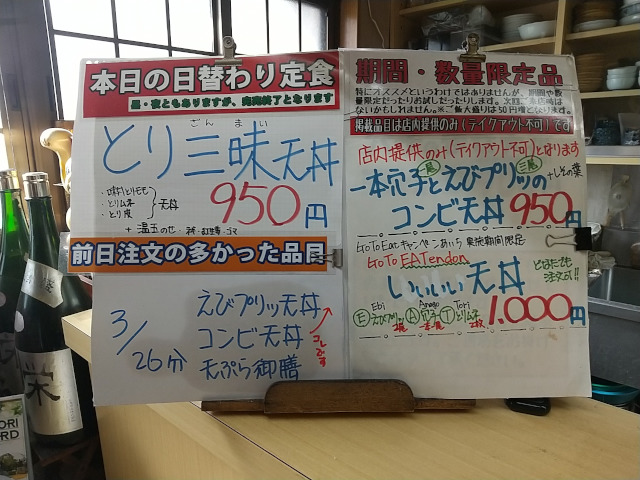 本日の日替わり定食
昼・夜ともありますが、完売終了となります
ざんまい
とり三昧天丼
とりモモ
・とりムネ
・とり皮
天丼
950円
+温玉のせ
前日注文の多かった品目
3/26分
えびプリッ天丼
コンビ天丼
天ぷら御膳
コレです
期間・数量限定品
特にオススメというわけではありませんが、期間や数
量限定だったりお試しだったりします。次回ご来店時は
ないかもしれません。※ご飯大盛りは50円増となります。
掲載品目は店内提供のみ(テイクアウト不可)です
店内提供のみ(テイクアウト不可)となります
一本穴子とえびプリッの
+しその葉
コンビ天丼 950円
GoToEatキャンペーンあいち 実施期間限定
GoTo EATendon
いいいい天丼
どなたでも
注文可!!
1.000円
Ebi
Anago
Tori
E えびプリッ A 穴子 T とりムネ
2尾 一本 2枚
栄